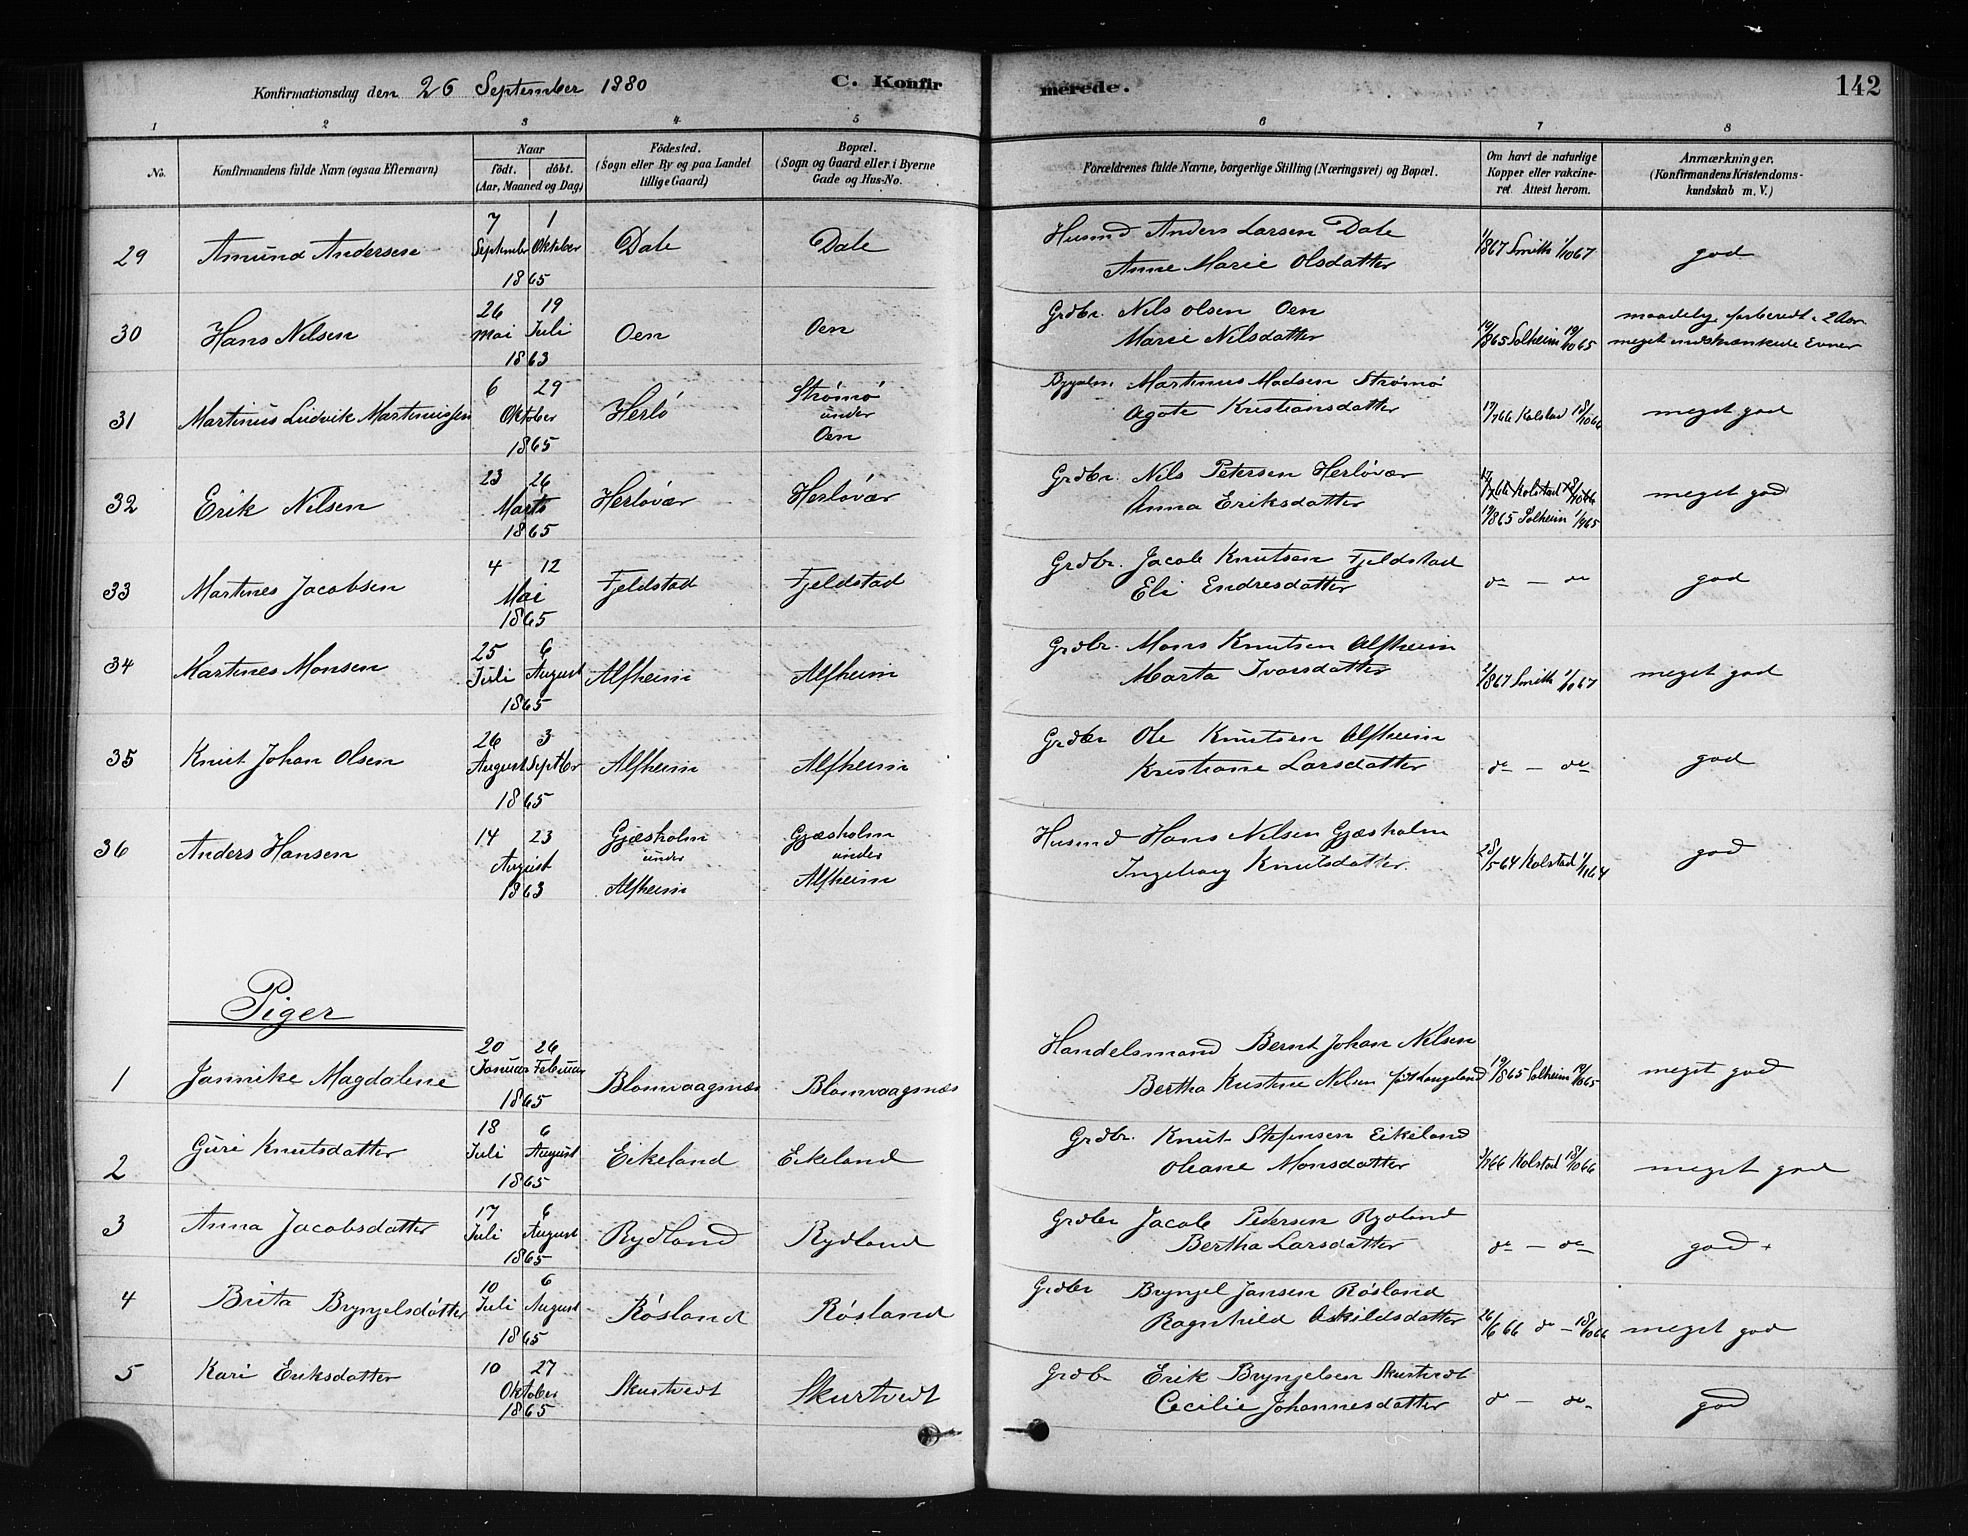 Konfirmationsdag den 26 September 1880
C. Konfirmerede.
142
1 2 3 4 5 6 7 8
No. Konfirmandens fulde Navn (ogsaa Efternavn) Naar født. døbt. (Aar, Maaned og Dag) Fødested. (Sogn eller By og paa Landet tillige Gaard) Bopæl. (Sogn og Gaard eller i Byerne Gade og Hus-No. Forældrenes fulde Navne, borgerlige Stilling (Næringsvei) og Bopæl. Om havt de naturlige Kopper eller vakcineret. Attest herom. Anmærkninger. (Konfirmandens Kristendomskundskab m. V.)
29 Amund Andersen 7 September 1 Oktober 1865 Dale Dale Husmd Anders Larsen Dale
Anne Marie Olsdatter 1/8 67 Smith 1/10 67 god
30 Hans Nilsen 26 Mai 19 Juli 1863 Oen Oen Grdbr. Nils Olsen Oen
Marie Nilsdatter 19/8 65 Solheim 19/10 65 maadelig, forberedt i 2 Aar
meget indskrænkede Evner
31 Martinus Ludvik Martinussen 6 29 Oktober 1865 Herlø Strømø under Oen Martinus Madsen Strømø
Agate Kristiansdatter 17/7 66 Kolstad 18/10 66 meget god
32 Erik Nilsen 23 26 Marts 1865 Herløvær Herløvær Grdbr. Nils Petersen Herløvær
Anna Eriksdatter 17/7 66 Kolstad 18/10 66
19/8 65 Solheim meget god
33 Martines Jacobsen 4 12 Mai 1865 Fjeldstad Fjeldstad Grdbr. Jacob Knutsen Fjeldstad
Eli Endresdatter do — do god
34 Martines Monsen 25 Juli 6 August 1865 Alfheim Alfheim Grdbr. Mons Knutsen Alfheim
Marta Ivarsdatter 2/8 67 Smith 1/10 67 meget god
35 Knut Johan Olsen 26 August 3 Septbr 1865 Alfheim Alfheim Grdbr Ole Knutsen Alfheim
Kristiane Larsdatter do — do god
36 Anders Hansen 14 23 August 1863 Gjæsholm under Alfheim Gjæsholm under Alfheim Husmd Hans Nilsen Gjæsholm
Ingeborg Knutsdatter. 28/5 64 Kolstad god
Piger
1 Jannike Magdalene 20 Januar 26 Februar 1865 Blomvaagsnæs Blomvaagsnæs Handelsmand Bernt Johan Nilsen
Bertha Kristine Nilsen født Langeland 19/8 65 Solheim 19/10 65 meget god
2 Guri Knutsdatter 18 Juli 6 August 1865 Eikeland Eikeland Grdbr. Knut Stefensen Eikeland
Oleane Monsdatter Kolstad 18/10 66 meget god
3 Anna Jacobsdatter 17 Juli 6 August 1865 Rydland Rydland Grdbr Jacob Pedersen Rydland
Bertha Larsdatter do — do god +
4 Brita Brynjelsdatter 10 Juli 6 August 1865 Røsland Røsland Grdbr Brynjel Jansen Røsland
Ragnhild Askildsdatter 26/6 66 do — 18/10 66 meget god
5 Kari Eriksdatter 10 27 Oktober 1865 Skurtvedt Skurtvedt Grdbr Erik Brynjelsen Skurtvedt
Cecilie Johannesdatter do — do god